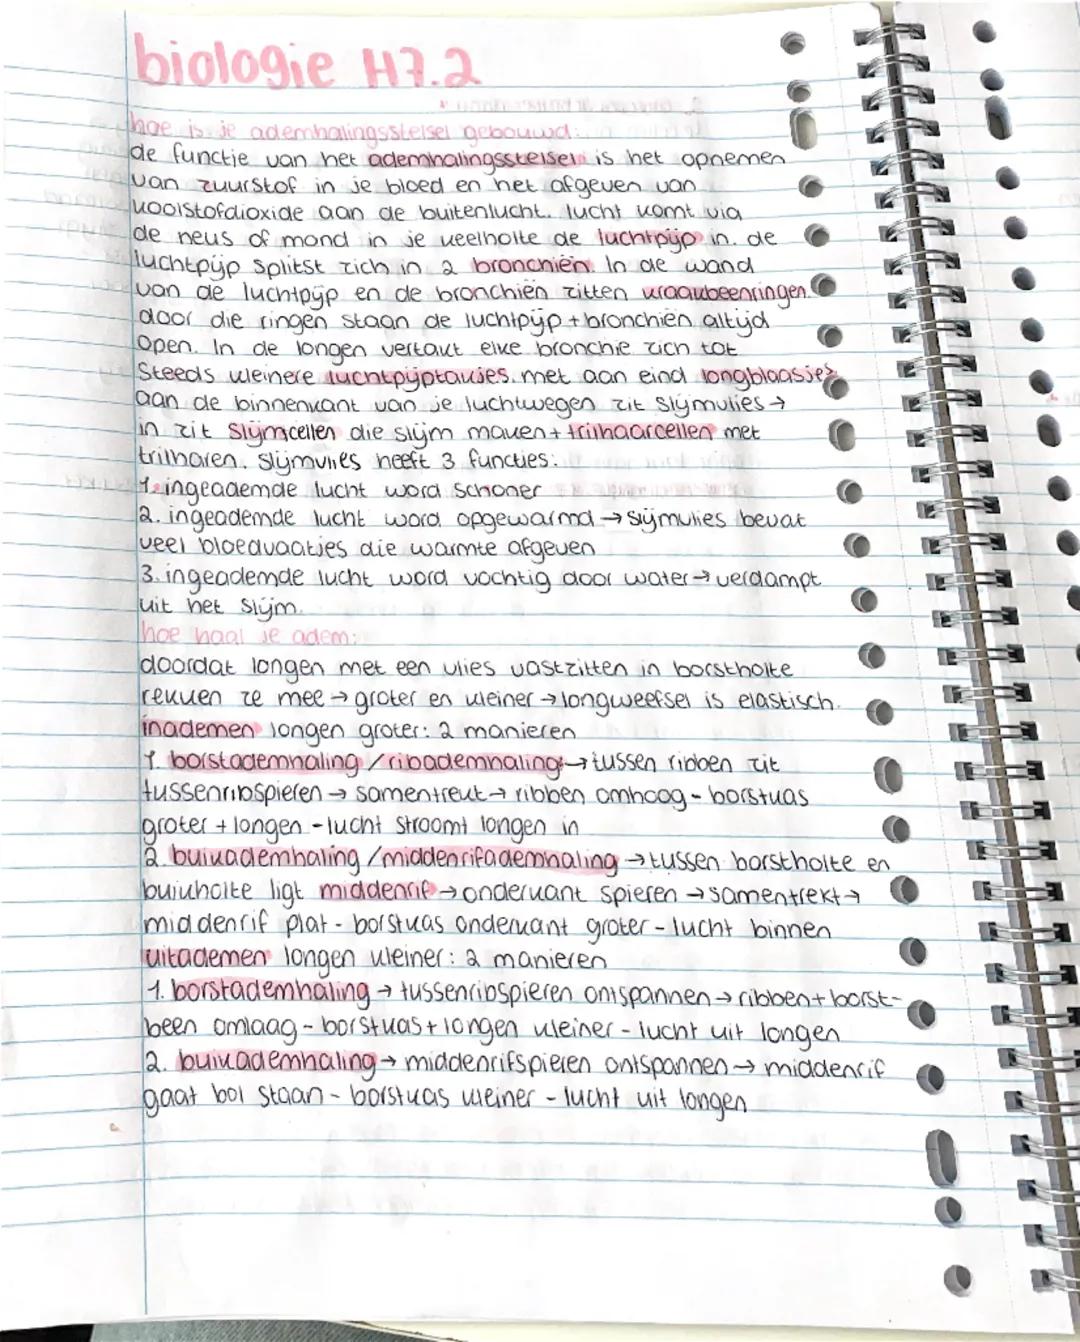 biologie H7.2
hoe is je ademhalingsstelsel gebouwd:
de functie van het ademhalingsstelsel is het opnemen
van zuurstof in je bloed en het afgeven van
koolstofdioxide aan de buitenlucht. lucht komt via
de neus of mond in je keelholte de luchtpijp in. de
luchtpijp splitst zich in 2 bronchiën. In de wand
van de luchtpijp en de bronchiën zitten kraakbeenringen.
door die ringen staan de luchtpijp + bronchiën altijd
open. In de longen vertakt elke bronchie zich tot
steeds kleinere luchtpijptakjes. met aan eind longblaasjes
aan de binnenkant van je luchtwegen zit slijmvlies →
in zit slijmcellen die slijm maken + trilhaarcellen met
trilharen. slijmvlies heeft 3 functies:
1. ingeademde lucht word schoner
2. ingeademde lucht word opgewarmd → slijmvlies bevat
veel bloedvaatjes die warmte afgeven
3. ingeademde lucht word vochtig door water → verdampt
uit het slijm.
hoe haal je adem:
doordat longen met een vlies vastzitten in borstholte
rekken ze mee → groter en kleiner → longweefsel is elastisch.
inademen longen groter: 2 manieren
1. borstademhaling / ribademhaling: → tussen ribben zit
tussenribspieren → samentrekt → ribben omhoog - borstkas
groter + longen - lucht stroomt longen in
2. buikademhaling / middenrifademhaling → tussen borstholte en
buikholte ligt middenrif → onderkant spieren → samentrekt →
middenrif plat - borstkas onderkant groter - lucht binnen
uitademen longen kleiner: 2 manieren
1. borstademhaling → tussenribspieren onispannen → ribben + borst-
been omlaag - borstkas + longen kleiner - lucht uit longen
2. buikademhaling → middenrifspieren ontspannen → middenrif
gaat bol staan - borstkas kleiner - lucht uit longen